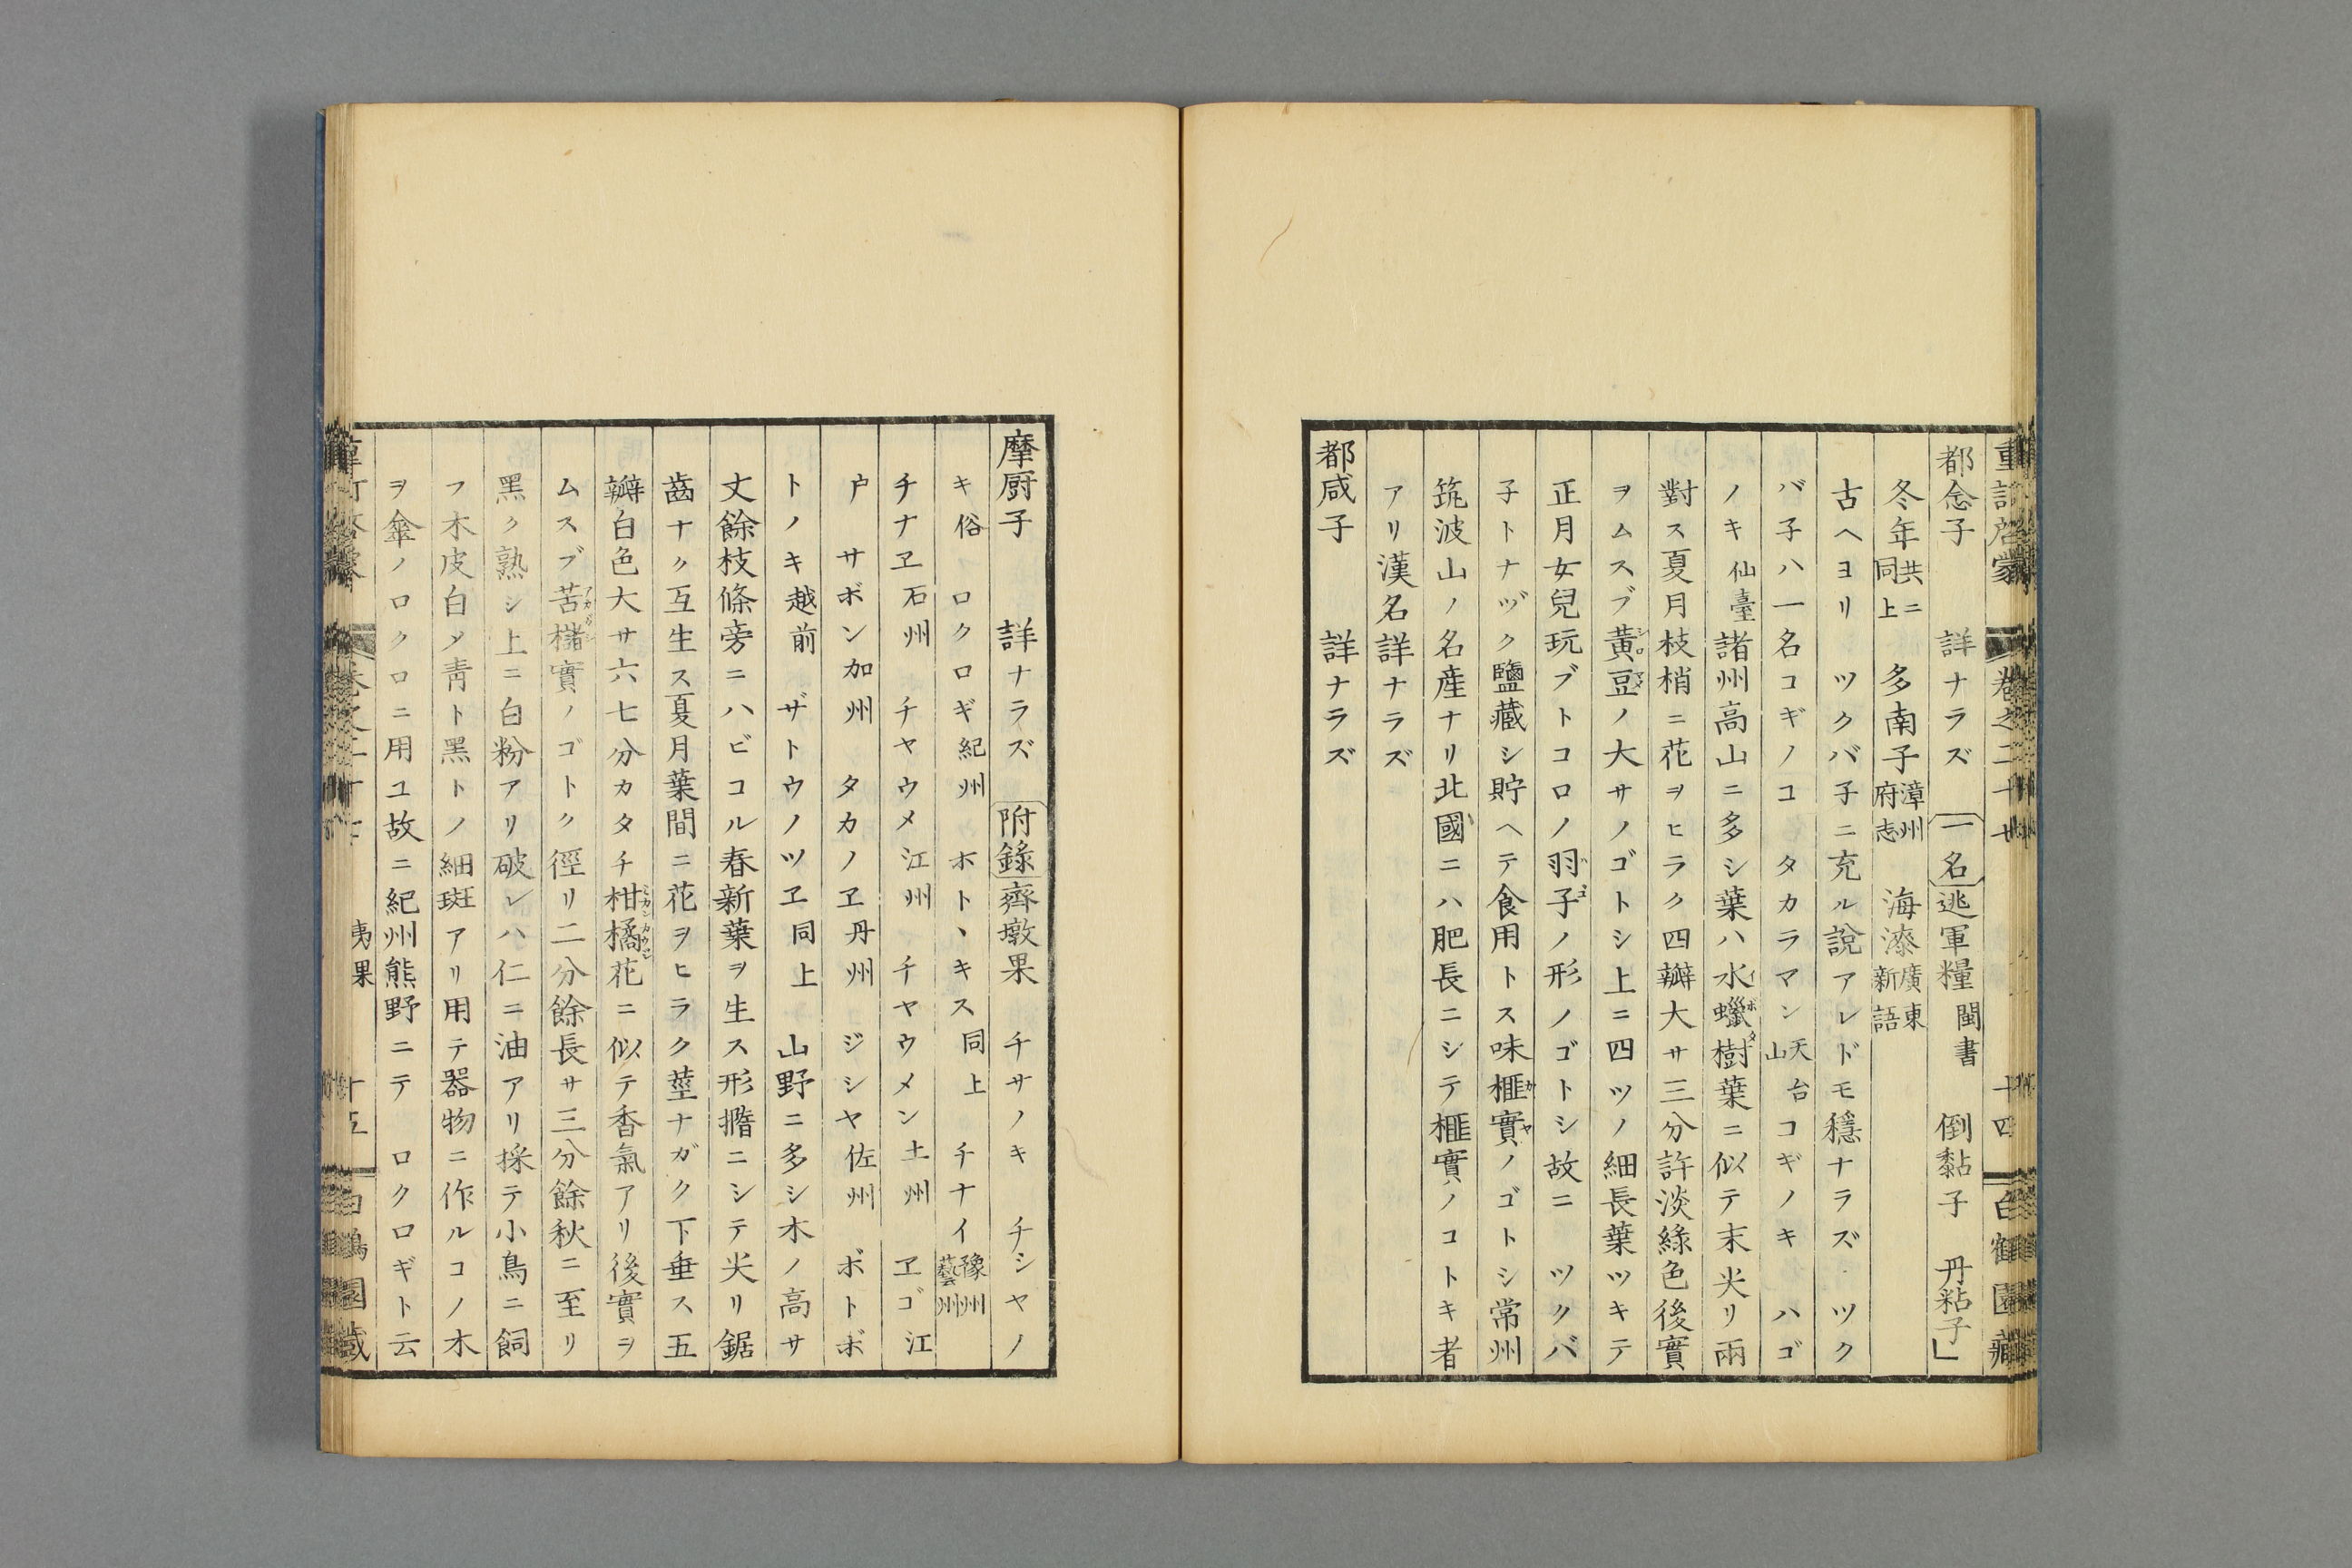 重訂啓蒙 卷之二十七 十四 白鶴園藏
都念子 詳ナラズ 一名 逃軍糧 閩書 倒黏子 丹粘子」
冬年 共ニ同上 多南子 漳州府志 海漆 廣東新語
古ヘヨリ ツクバ子ニ充ル說アレドモ穩ナラズ ツク
バ子ハ一名コギノコ タカラマン 天台山 コギノキ ハゴ
ノキ 仙臺 諸州高山ニ多シ葉ハ水蠟樹イボタ葉ニ似テ末尖リ兩
對ス夏月枝梢ニ花ヲヒラク四瓣大サ三分許淡綠色後實
ヲムスブ黃豆ノ大サノゴトシ上ニ四ツノ細長葉ツキテ
正月女兒玩ブトコロノ羽子ノ形ノゴトシ故ニ ツクバ
子トナヅク鹽藏シ貯ヘテ食用トス味榧實カヤノゴトシ常州
筑波山ノ名産ナリ北國ニハ肥長ニシテ榧實ノコトキ者
アリ漢名詳ナラズ
都咸子 詳ナラズ
摩厨子 詳ナラズ 附錄 齊墩果 チサノキ チシヤノ
キ 俗 ロクロギ 紀州 ホトヽキス 同上 チナイ 豫州藝州
チナヱ 石州 チヤウメ 江州 チヤウメン 土州 ヱゴ 江
户 サボン 加州 タカノヱ 丹州 ジシヤ 佐州 ボトボ
トノキ 越前 ザトウノツヱ 同上 山野ニ多シ木ノ高サ
丈餘枝條旁ニハビコル春新葉ヲ生ス形橢ニシテ尖リ鋸
齒ナク互生ス夏月葉間ニ花ヲヒラク莖ナガク下垂ス五
瓣白色大サ六七分カタチ柑橘花ニ似テ香氣アリ後實ヲ
ムスブ苦櫧實ノゴトク徑リ二分餘長サ三分餘秋ニ至リ
黑ク熟シ上ニ白粉アリ破レハ仁ニ油アリ採テ小鳥ニ飼
フ木皮白メ靑ト黑トノ細斑アリ用テ器物ニ作ルコノ木
ヲ傘ノロクロニ用ユ故ニ紀州熊野ニテ ロクロギト云
夷果 十五